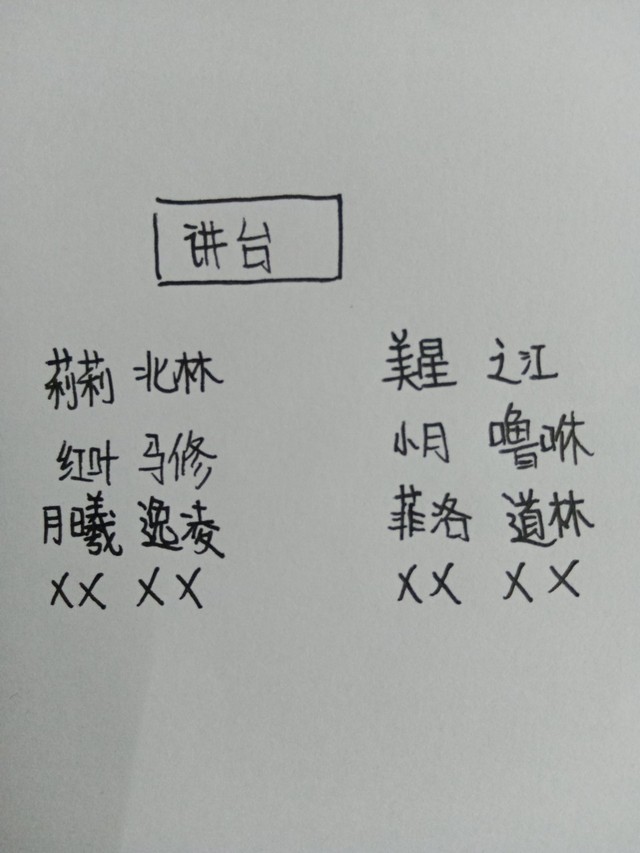 讲台
莉莉 北林 美星 之江
红叶 马修 小月 噜咻
月曦 逸凌 菲洛 道林
XX XX XX XX